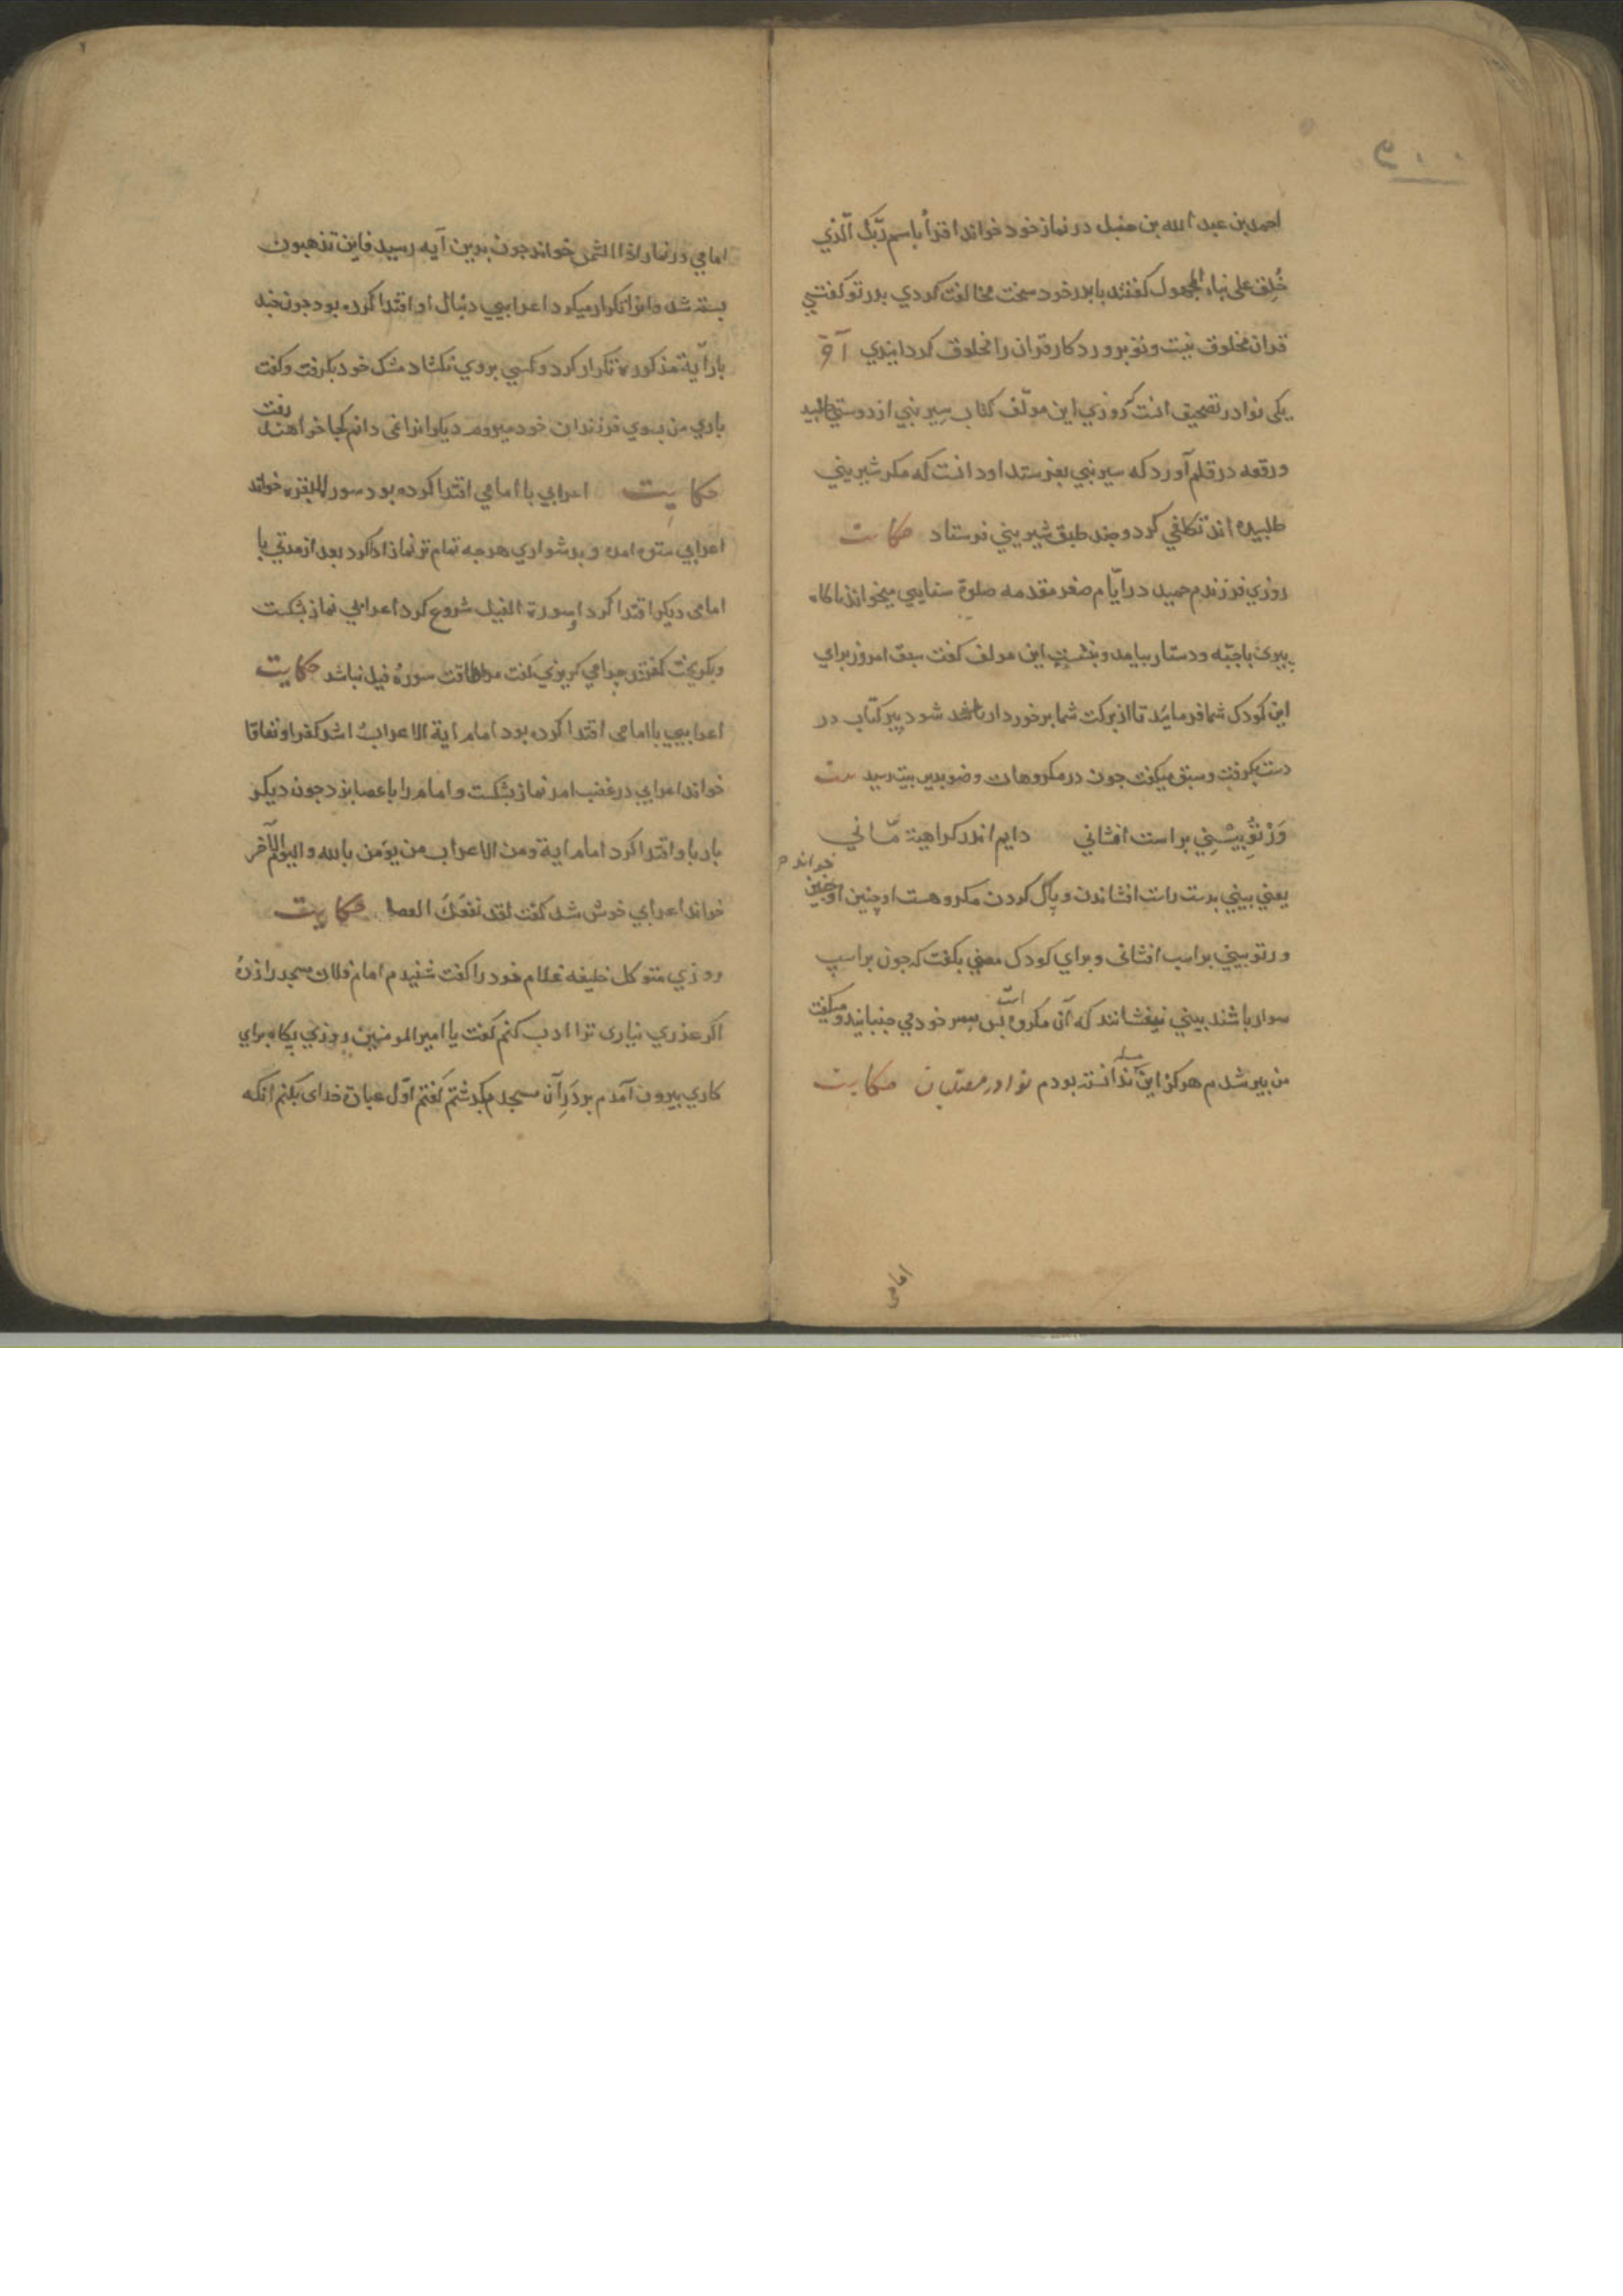 احمد بن عبد الله بن حنبل در نماز خود خواند اقرأ باسم ربّک الّذي
خُلِق علی بناء المجهول کفتند با بدر خود سخت مخالفت کردي بدر تو کفتي
قران مخلوق نیست و تو بروردکار قران را مخلوق کردانیدي آخر
یکی نوادر تصحیف انست که روزي این مولّف کتاب سِیر نبي از دوستي طلبید
و رقعه در قلم آورد که سیر نبي بفرستد او دانست که مکر شیریني
طلبیده اند تکلفي کرد و جند طبق شیریني فرستاد حکایت
روزي فرزندم حمید در ایّام صغر مقدمه صلوة سنایي میخواند ناکاه
پیري با جبّه و دستار بیامد و بنشست این مولف کفت سبق امروز براي
این کودک شما فرمائید تا از برکت شما برخوردار باشد شود پیر کتاب در
دست بکرفت و سبق میکفت جون در مکروهات وضو بدین بیت رسید بیت
وَرْ تُو بیْنِي براست افشاني دایم اندر کراهیة مّاني
یعني بیني بدست راست افشاندن و پاک کردن مکروهست او چنین خواند
ور تو بیني براسب افشانی و براي کودک معني بکفت که جون براسپ
سوار باشند بیني نیفشانند که آن مکروه است بس سر خود مي جنبانید و میکفت
من پیر شدم هرکز این مسله ندانسته بودم نوادر مصلیان حکایت
امامي
امامي در نماز اذا الشمس خواند جون بدین آیه رسید فاین تذهبون
بسته شد و انرا تکرار میکرد اعرابیي دنبال او اقتدا کرده بود جون جند
بار آیة مذکوره تکرار کرد و کسي بروي نکشاد مشک خود بکرفت و کفت
باري من بسوي فرزندان خود میروم دیکرانرا نمی دانم کجا خواهند رفت
حکایت اعرابي با امامي اقتدا کرده بود سورة البقره خواند
اعرابي ستوه امد و بدشواري هرجه تمام تر نماز ادا کرد بعد از مدتي با
امامی دیکر اقتدا کرد او سورة الفیل شروع کرد اعرابي نماز بشکست
و بکریخت کفتند چرا مي کریزي کفت مرا طاقت سورهٔ فیل نباشد حکایت
اعرابیي با امامی اقتدا کرده بود امام ایة الاعرابُ اشد کفرا و نفاقا
خواند اعرابي در غضب امد نماز بشکست و امام را با عصا بزد جون دیکر
بار با او اقتدا کرد امام ایة ومن الاعراب من یؤمن بالله والیوم الآخر
خواند اعرابي خوش شد کفت لقد نفعک العصا حکایت
روزي متوکل خلیفه غلام خود را کفت شنیدم امام فلان مسجد را زدهٔ
اکر عذري نیاری ترا ادب کنم کفت یا امیر المومنین روزي پکاه براي
کاري بیرون آمدم بودَرِ آن مسجد بکذشتم کفتم اوّل عبادة خدای بکنم انکه